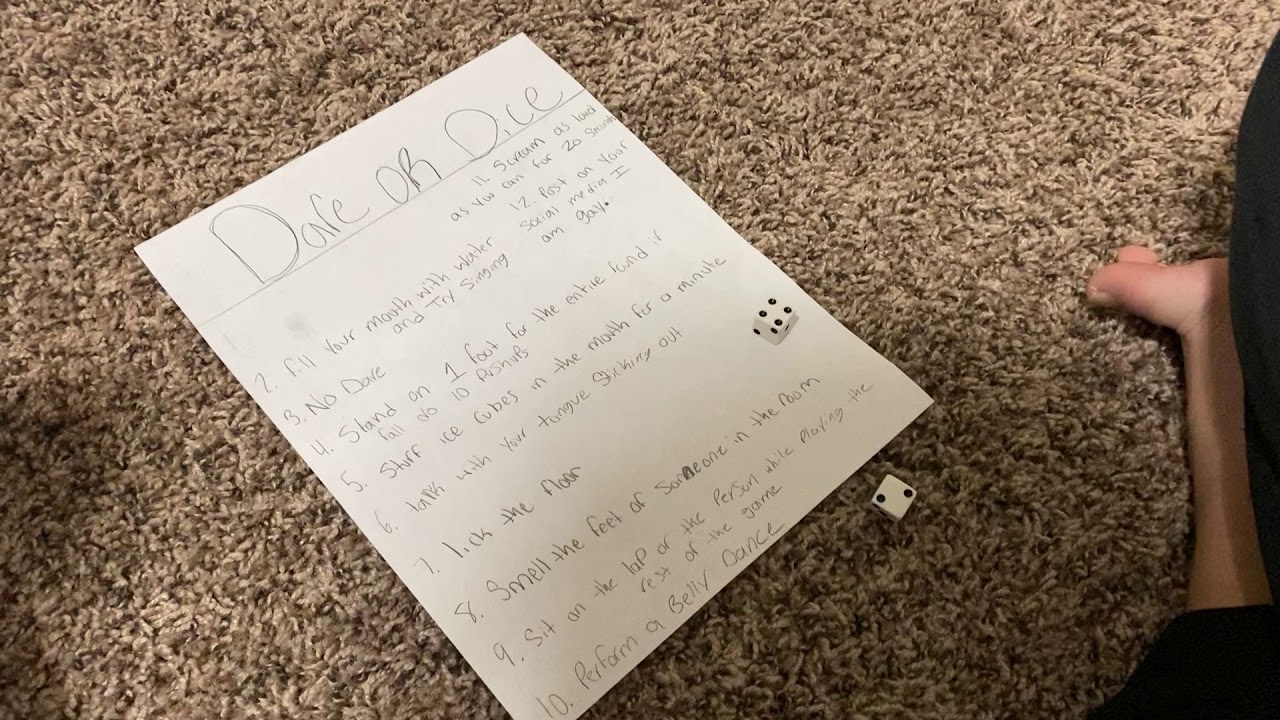 Dare OR Dice
11. Scream as loud
as you can for 20 seconds
12. Post on your
social media I
am gay.
2. fill your mouth with water
and Try Singing
3. No Dare
4. Stand on 1 foot for the entire round if
fall do 10 Pushups
5. Stuff ice cubes in the mouth for a minute
6. talk with your tongue sticking out
7. lick the floor
8. Smell the feet of someone in the room
9. Sit on the lap of the Person while Playing the
rest of the game
10. Perform a Belly Dance